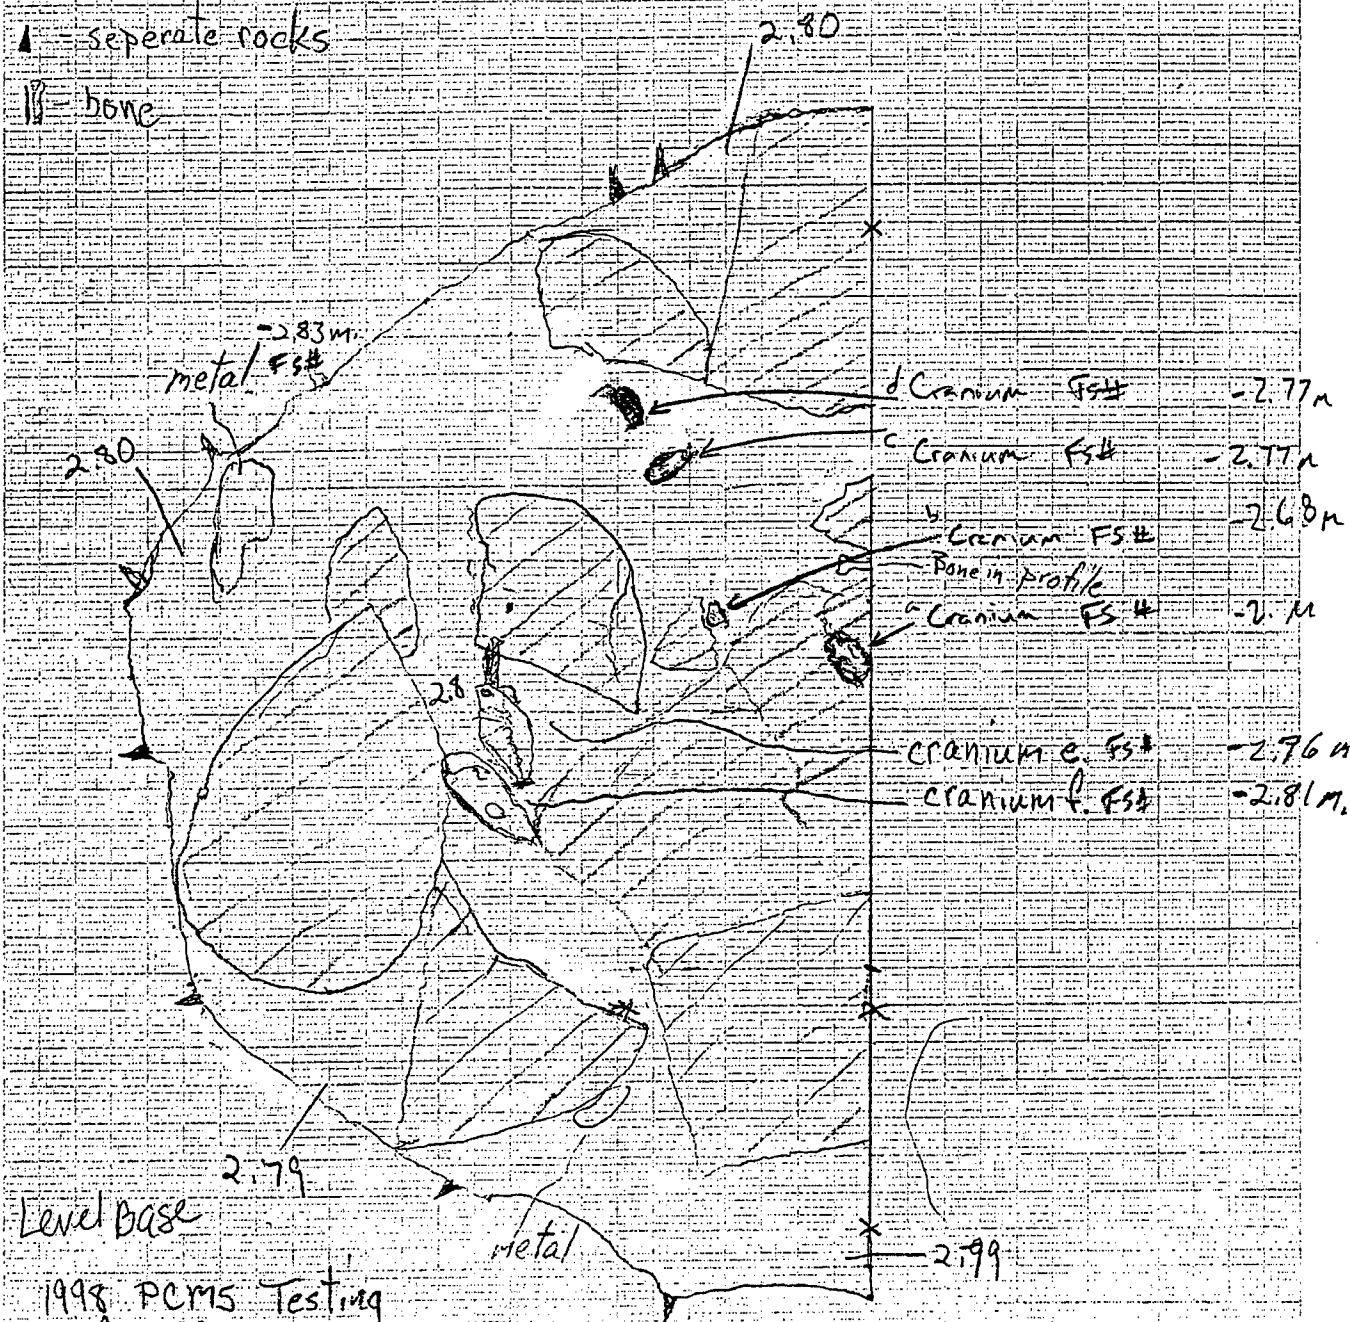 - seperate rocks
- bone
2.80
-2.83m.
metal FS#
2.80
d Cranium FS# -2.77m
c Cranium FS# -2.77m
b Cranium FS# -2.68m
Bone in profile
a Cranium FS# -2. M
2.8
cranium e. FS# -2.76m
cranium f. FS# -2.81m.
2.79
Level Base
metal
2.99
1998 PCMS Testing